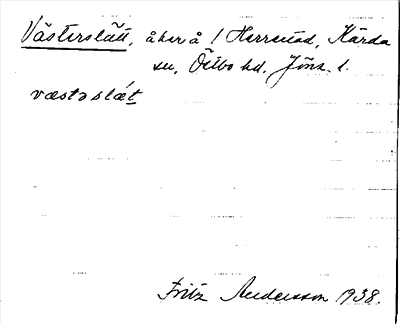 Västerslätt, åker å 1 Herrestad, Kärda
sn, Östbo hd. Jönk. l.
væstəslǽt
Fritz Andersson 1938.